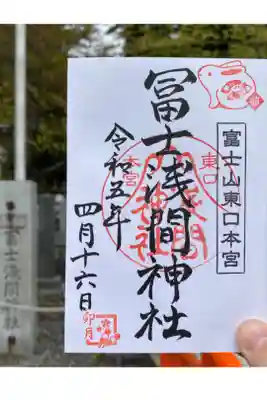 富士山東口本宮
冨士浅間神社
東口
本宮
令和五年
四月十六日
卯月
冨士浅間神社